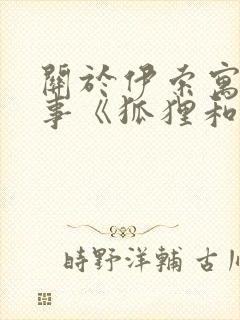 關於伊索寓
事《狐狸和
時野洋輔 古川